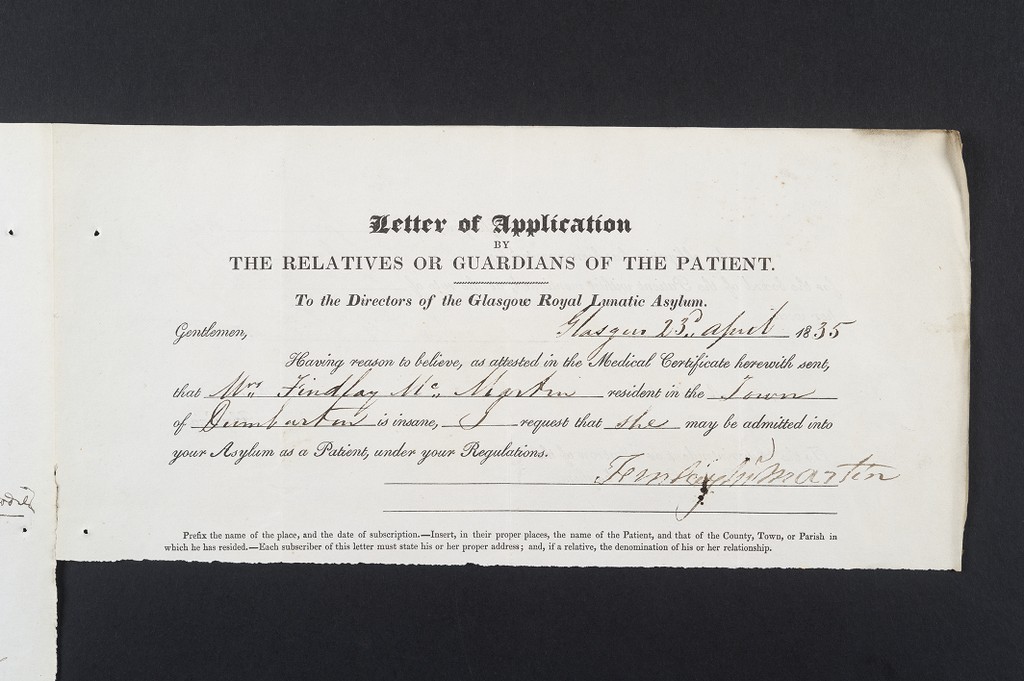 Letter of Application
BY
THE RELATIVES OR GUARDIANS OF THE PATIENT.
To the Directors of the Glasgow Royal Lunatic Asylum.
Gentlemen, Glasgow 23d. April 1835
Having reason to believe, as attested in the Medical Certificate herewith sent,
that Mrs Findlay Mc. Martin resident in the Town
of Dumbarton is insane, I request that she may be admitted into
your Asylum as a Patient, under your Regulations.
Martin
Prefix the name of the place, and the date of subscription.—Insert, in their proper places, the name of the Patient, and that of the County, Town, or Parish in
which he has resided.—Each subscriber of this letter must state his or her proper address; and, if a relative, the denomination of his or her relationship.